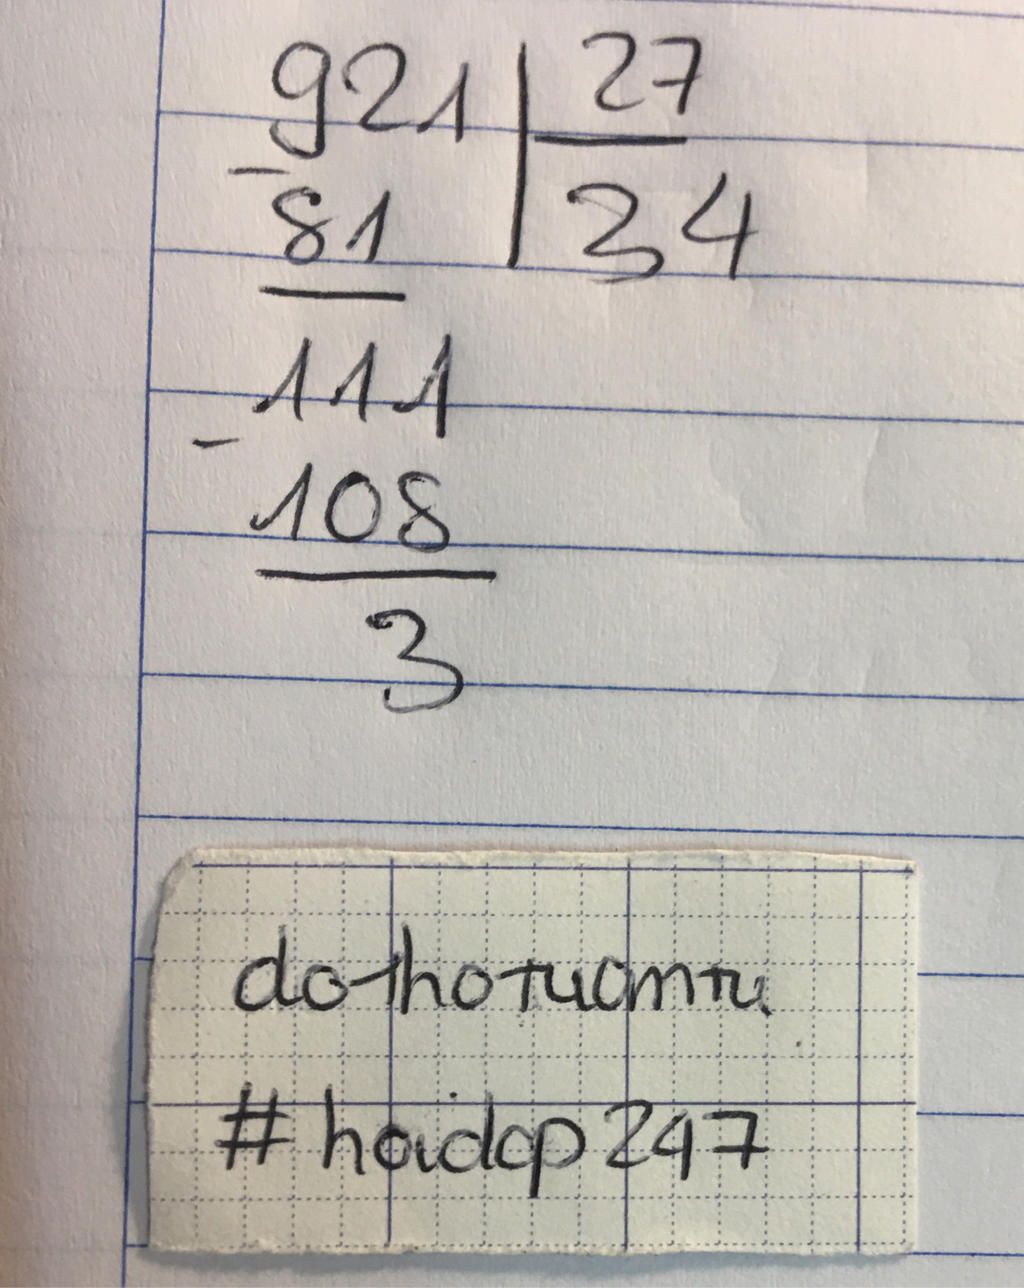 921 27
- 81 34
111
- 108
3
#hoidap247